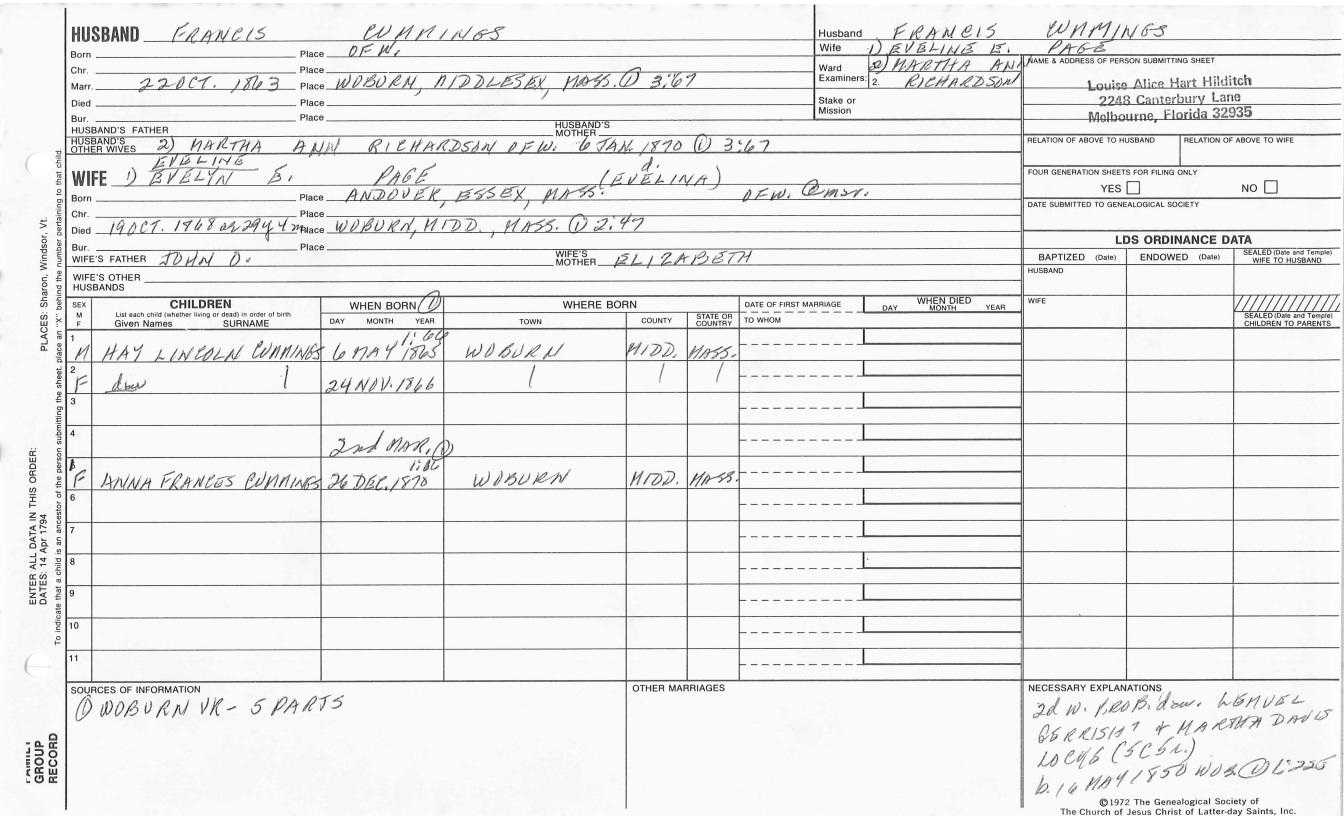 HUSBAND FRANCIS CUMMINGS
Born Place OF W.
Chr. Place
Marr. 22 OCT. 1863 Place WOBURN, MIDDLESEX, MASS. ① 3:67
Died Place
Bur. Place
HUSBAND'S FATHER HUSBAND'S MOTHER
HUSBAND'S OTHER WIVES 2) MARTHA ANN RICHARDSON OF W. 6 JAN. 1870 ① 3:67
EVELINE d.
WIFE 1) EVELYN E. PAGE (EVELINA)
Born Place ANDOVER, ESSEX, MASS. OF W. @ mar.
Chr. Place
Died 19 OCT. 1968 29y 4m Place WOBURN, MIDD., MASS. ① 2:47
Bur. Place
WIFE'S FATHER JOHN D. WIFE'S MOTHER ELIZABETH
WIFE'S OTHER HUSBANDS
Husband FRANCIS CUMMINGS
Wife 1) EVELINE E. PAGE
2) MARTHA ANN
Ward Examiners: 2. RICHARDSON
Stake or Mission
NAME & ADDRESS OF PERSON SUBMITTING SHEET
Louise Alice Hart Hilditch
2248 Canterbury Lane
Melbourne, Florida 32935
RELATION OF ABOVE TO HUSBAND RELATION OF ABOVE TO WIFE
FOUR GENERATION SHEETS FOR FILING ONLY
YES NO
DATE SUBMITTED TO GENEALOGICAL SOCIETY
LDS ORDINANCE DATA
BAPTIZED (Date) ENDOWED (Date) SEALED (Date and Temple) WIFE TO HUSBAND
HUSBAND
WIFE
SEALED (Date and Temple) CHILDREN TO PARENTS
SEX M F CHILDREN WHEN BORN ① WHERE BORN DATE OF FIRST MARRIAGE WHEN DIED
List each child (whether living or dead) in order of birth
Given Names SURNAME DAY MONTH YEAR TOWN COUNTY STATE OR COUNTRY TO WHOM DAY MONTH YEAR
1 1:66
M HAY LINCOLN CUMMINGS 6 MAY 1865 WOBURN MIDD. MASS.
2
F dau 24 NOV. 1866
3
4
2nd MAR. ①
1:66
F ANNA FRANCES CUMMINGS 26 DEC. 1870 WOBURN MIDD. MASS.
6
7
8
9
10
11
SOURCES OF INFORMATION
① WOBURN VR - 5 PARTS
OTHER MARRIAGES
NECESSARY EXPLANATIONS
2d w. PROB. dau. LEMUEL
GERRISH ? & MARTHA DAVIS
b. 16 MAY 1850 WOB. ① 1:225
©1972 The Genealogical Society of
The Church of Jesus Christ of Latter-day Saints, Inc.
PLACES: Sharon, Windsor, Vt.
To indicate that a child is an ancestor of the person submitting the sheet, place an "X" behind the number pertaining to that child.
ENTER ALL DATA IN THIS ORDER:
DATES: 14 Apr 1794
FAMILY GROUP RECORD